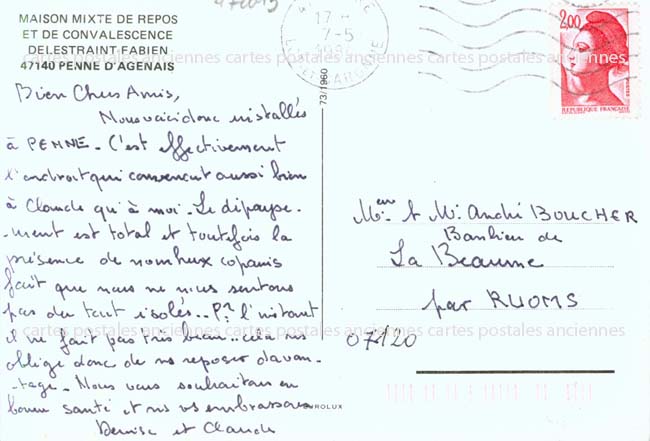 MAISON MIXTE DE REPOS
ET DE CONVALESCENCE
DELESTRAINT-FABIEN
47140 PENNE D'AGENAIS
Bien Chers Amis,
Nous voici donc installés
à PENNE - C'est effectivement
l'endroit qui convenait aussi bien
à Claude qu'à moi - Le dépayse-
-ment est total et toutefois la
présence de nombreux copains
fait que nous ne nous sentons
pas du tout isolés.. Pr l'instant
il ne fait pas très beau.. cela ns
oblige donc de ns reposer davan-
-tage - Nous vous souhaitons en
bonne santé et ns vs embrassons
Denise et Claude
17 -
7-5
73/1960
2,00
REPUBLIQUE FRANÇAISE
Men & Mr André BOUCHER
La Beaume
par RUOMS
07120
cartes postales anciennes cartes postales anciennes cartes postales anciennes
cartes postales anciennes cartes postales anciennes cartes postales anciennes